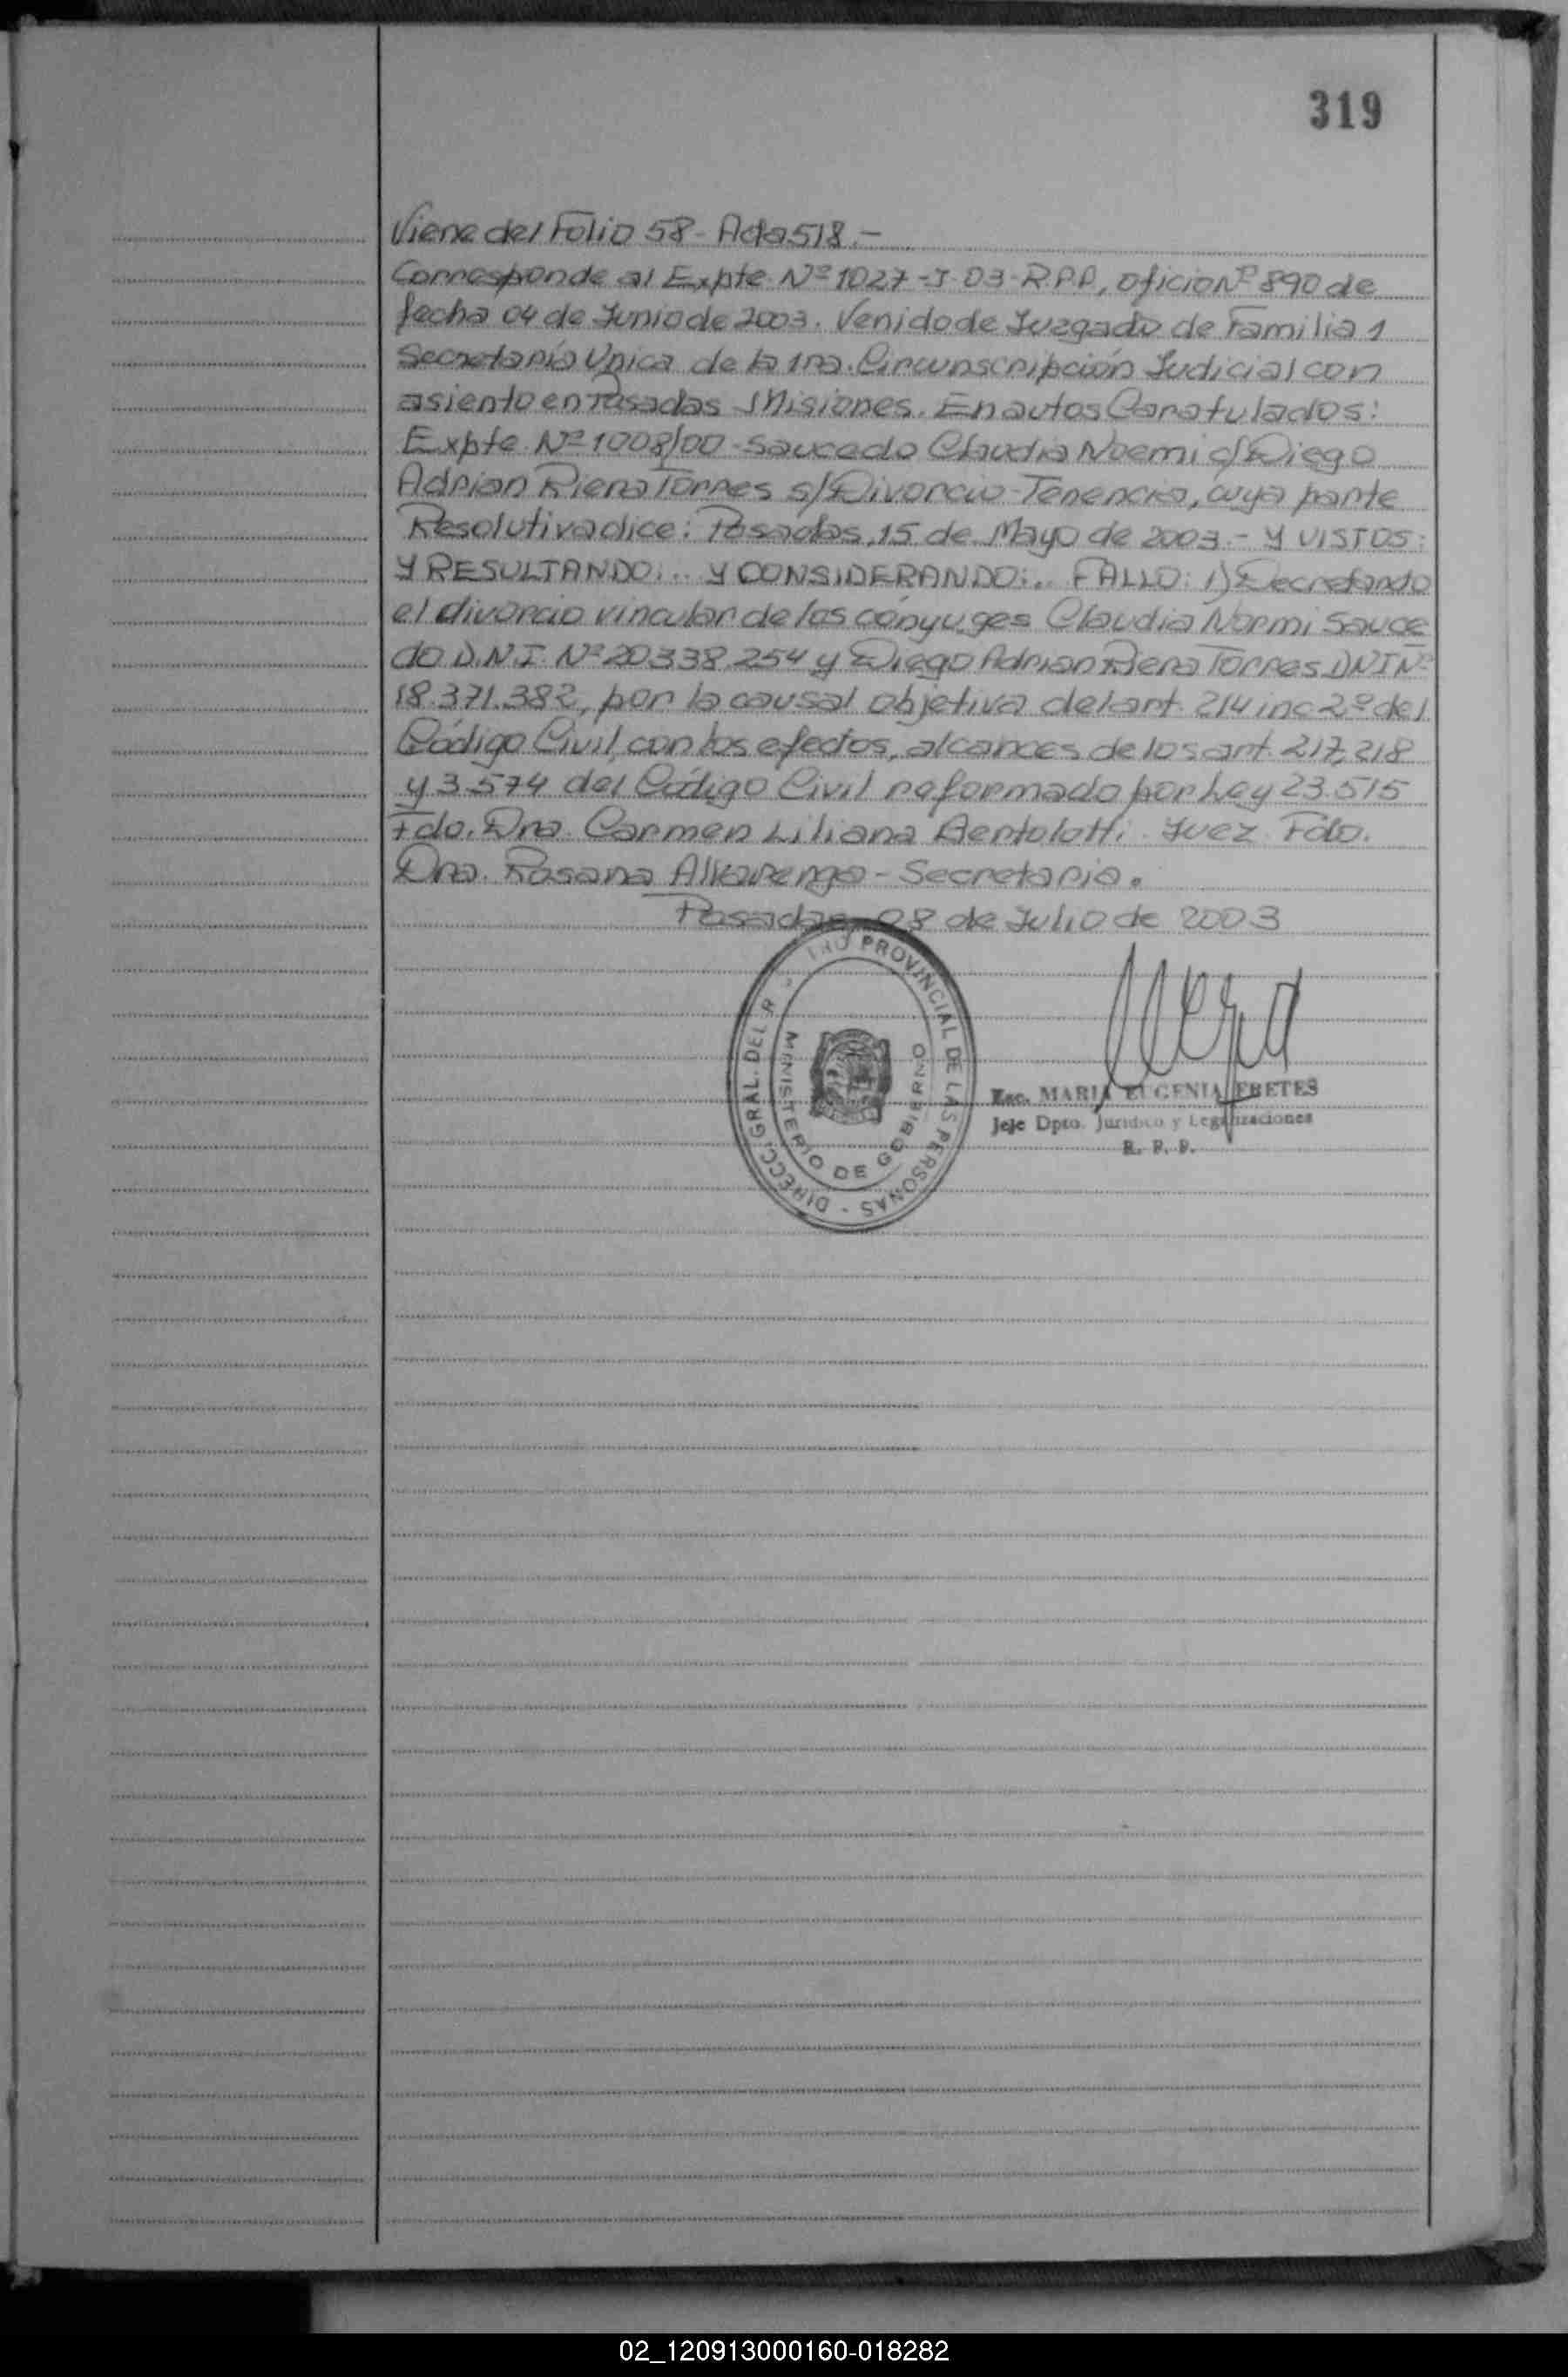 319
Viene del Folio 58 - Acta 518.-
Corresponde al Expte. Nº 1027-J-03-R.P.P, oficio Nº 890 de
fecha 04 de Junio de 2003. Venido de Juzgado de Familia 1
Secretaría Unica de la 1ra. Circunscripción Judicial con
asiento en Posadas Misiones. En autos Caratulados:
Expte. Nº 1008/00 - Saucedo Claudia Noemi c/ Diego
Adrian Riera Torres s/ Divorcio - Tenencia, cuya parte
Resolutiva dice: Posadas, 15 de Mayo de 2003.- Y VISTOS:
Y RESULTANDO:.. Y CONSIDERANDO:.. FALLO: 1) Decretando
el divorcio vincular de los cónyuges Claudia Normi Sauce
do D.N.I. Nº 20.338.254 y Diego Adrian Riera Torres DNI Nº
18.371.382, por la causal objetiva del art. 214 inc 2º del
Código Civil, con los efectos, alcances de los art. 217, 218
y 3.574 del Código Civil reformado por Ley 23.515
Fdo. Dra. Carmen Liliana Bertolotti. Juez. Fdo.
Dra. Rosana Alvarenga - Secretaria.
Posadas, 08 de Julio de 2003
DIRECC. GRAL. DEL R PROVINCIAL DE LAS PERSONAS -
MINISTERIO DE GOBIERNO
Esc. MARIA EUGENIA
Jefe Dpto. Jurídico y Legalizaciones
R. P. P.
02_120913000160-018282